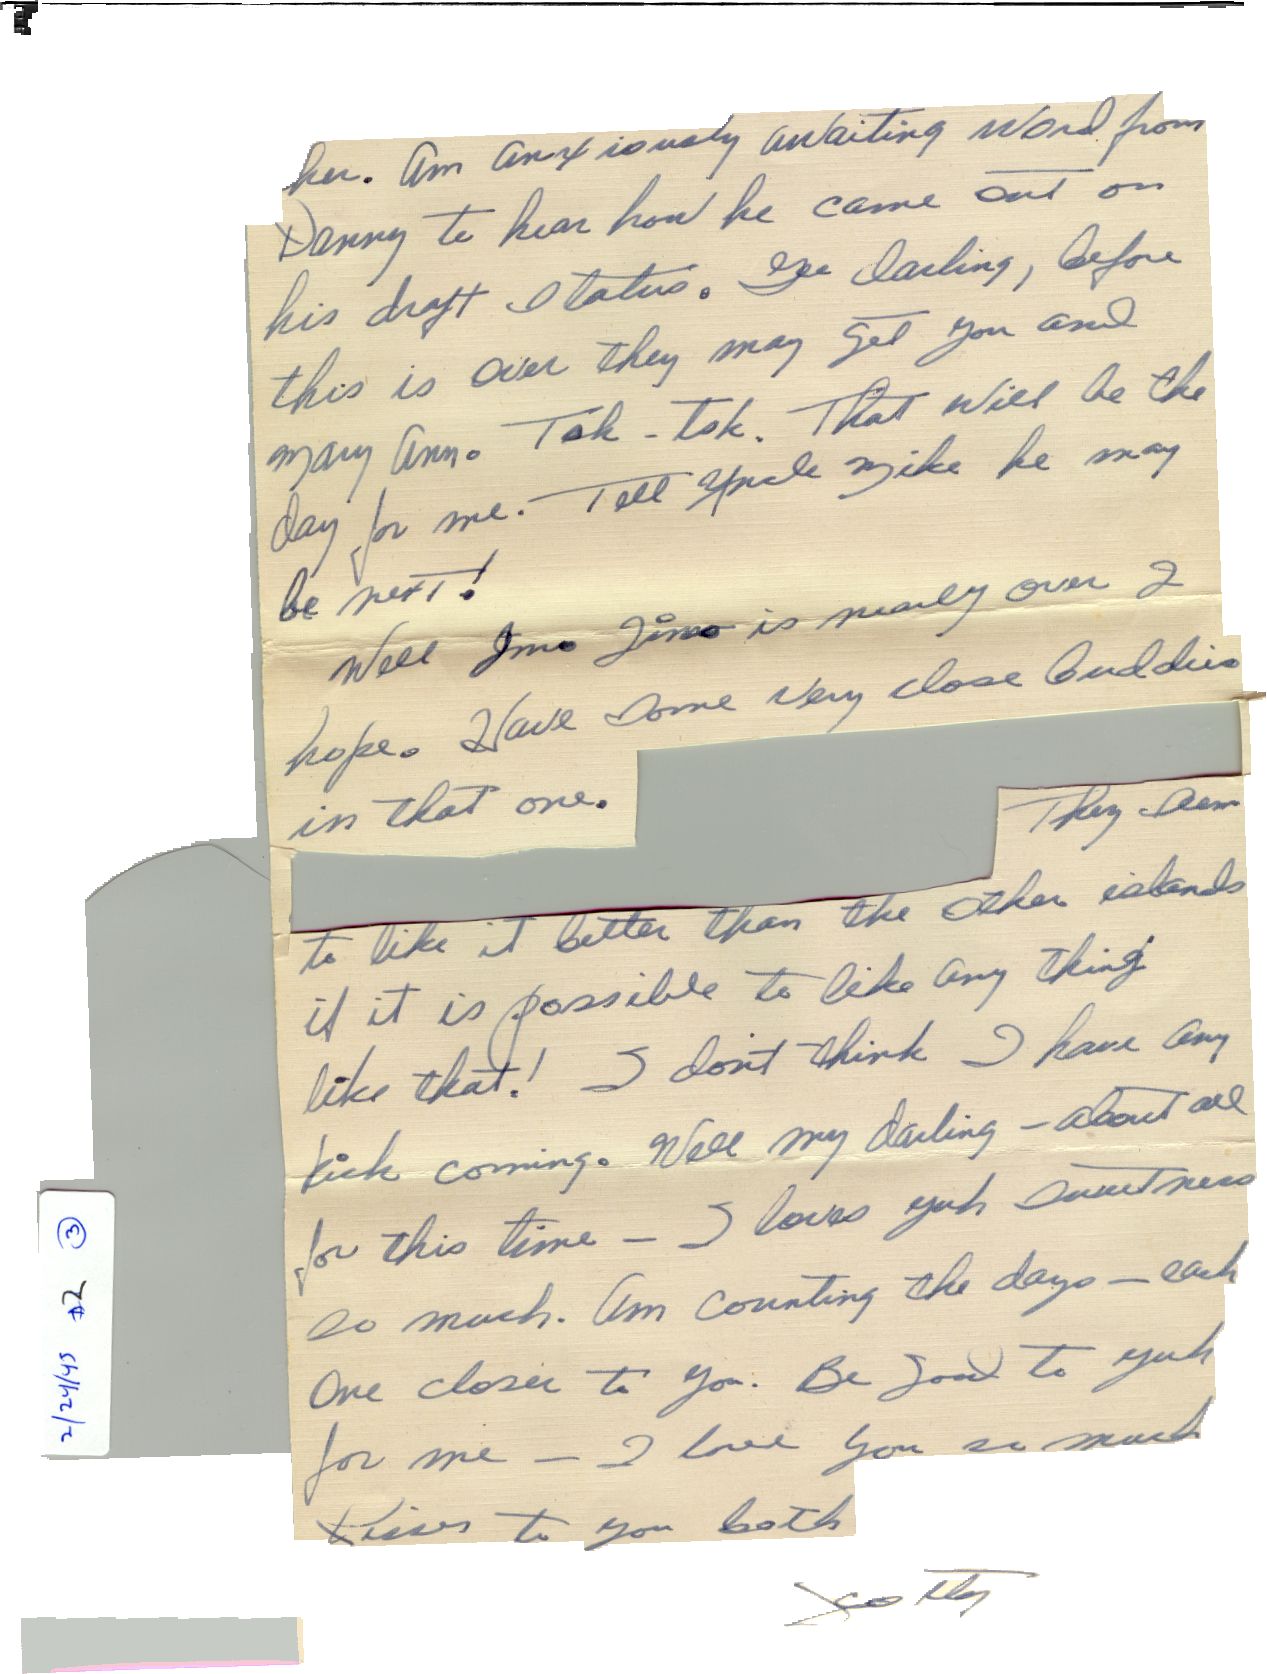 her. Am anxiously awaiting word from
Danny to hear how he came out on
his draft status. Gee darling, before
this is over they may get you and
Mary Ann. Tsk-tsk. That will be the
day for me. Tell Uncle Mike he may
be next!
Well Imo Jima is nearly over I
hope. Have some very close buddies
in that one.
They seem
to like it better than the other islands
if it is possible to like any thing
like that! I don't think I have any
kick coming. Well my darling - about all
for this time - I loves yuh sweetness
so much. Am counting the days - each
one closer to you. Be good to yuh
for me - I love you so much
Kisses to you both
Scotty
2/24/45 #2 ③